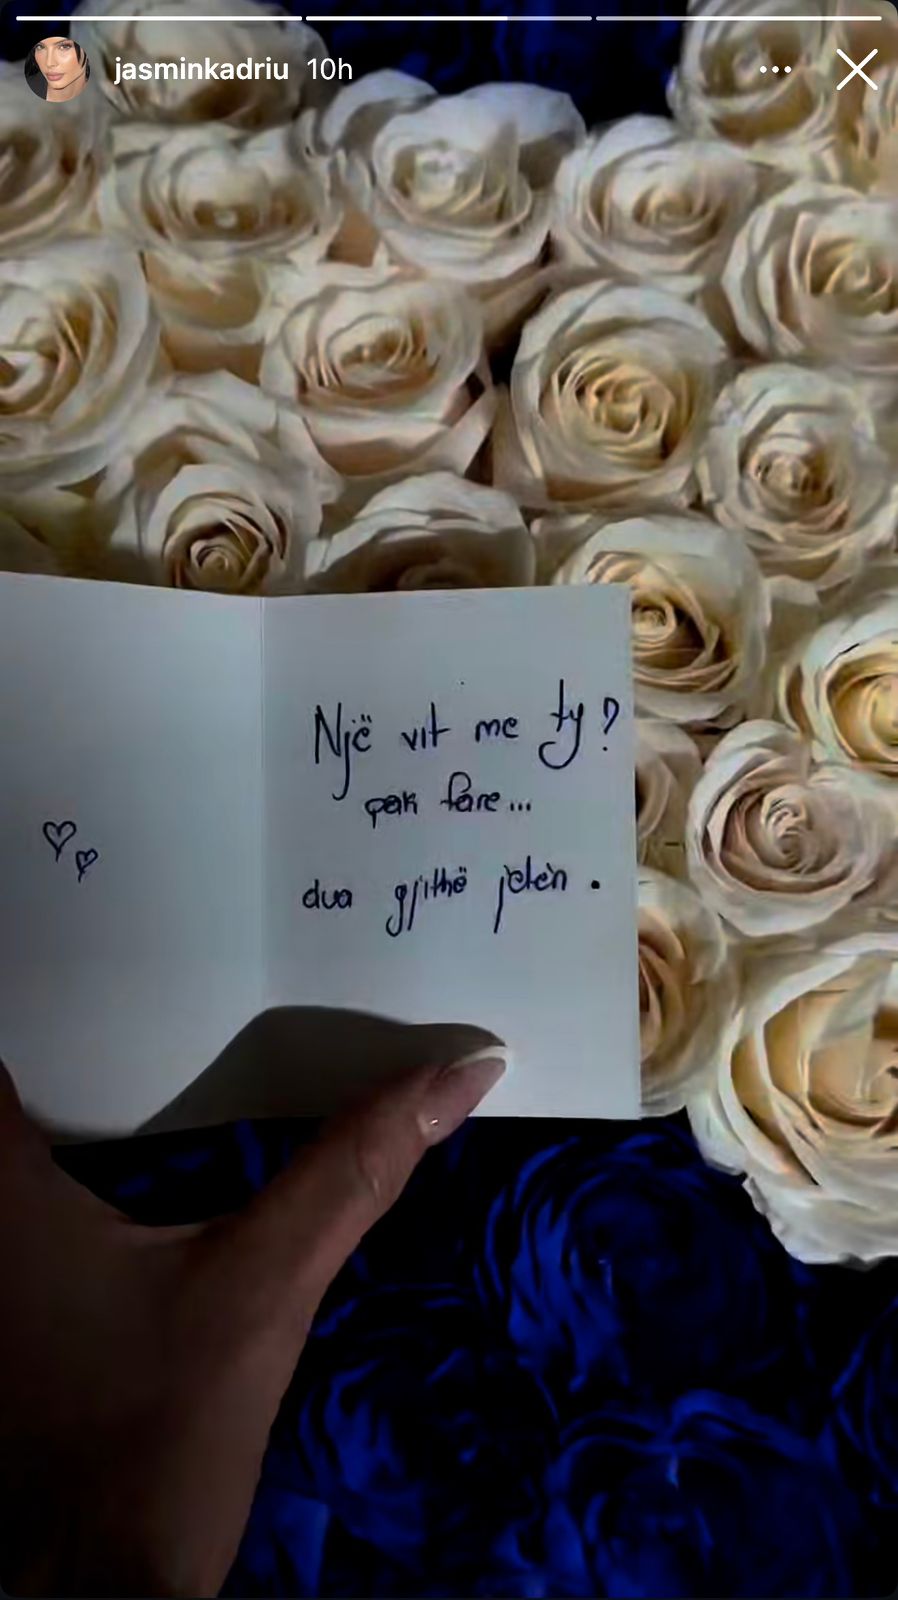 jasminkadriu 10h
Një vit me ty?
pak fare...
dua gjithë jetën.